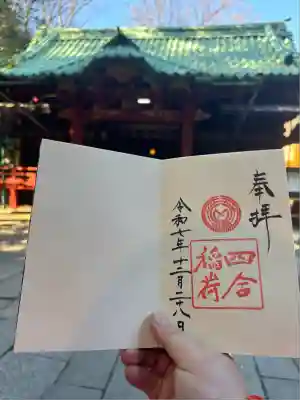 奉拝
四合
稲荷
令和七年十二月二十八日